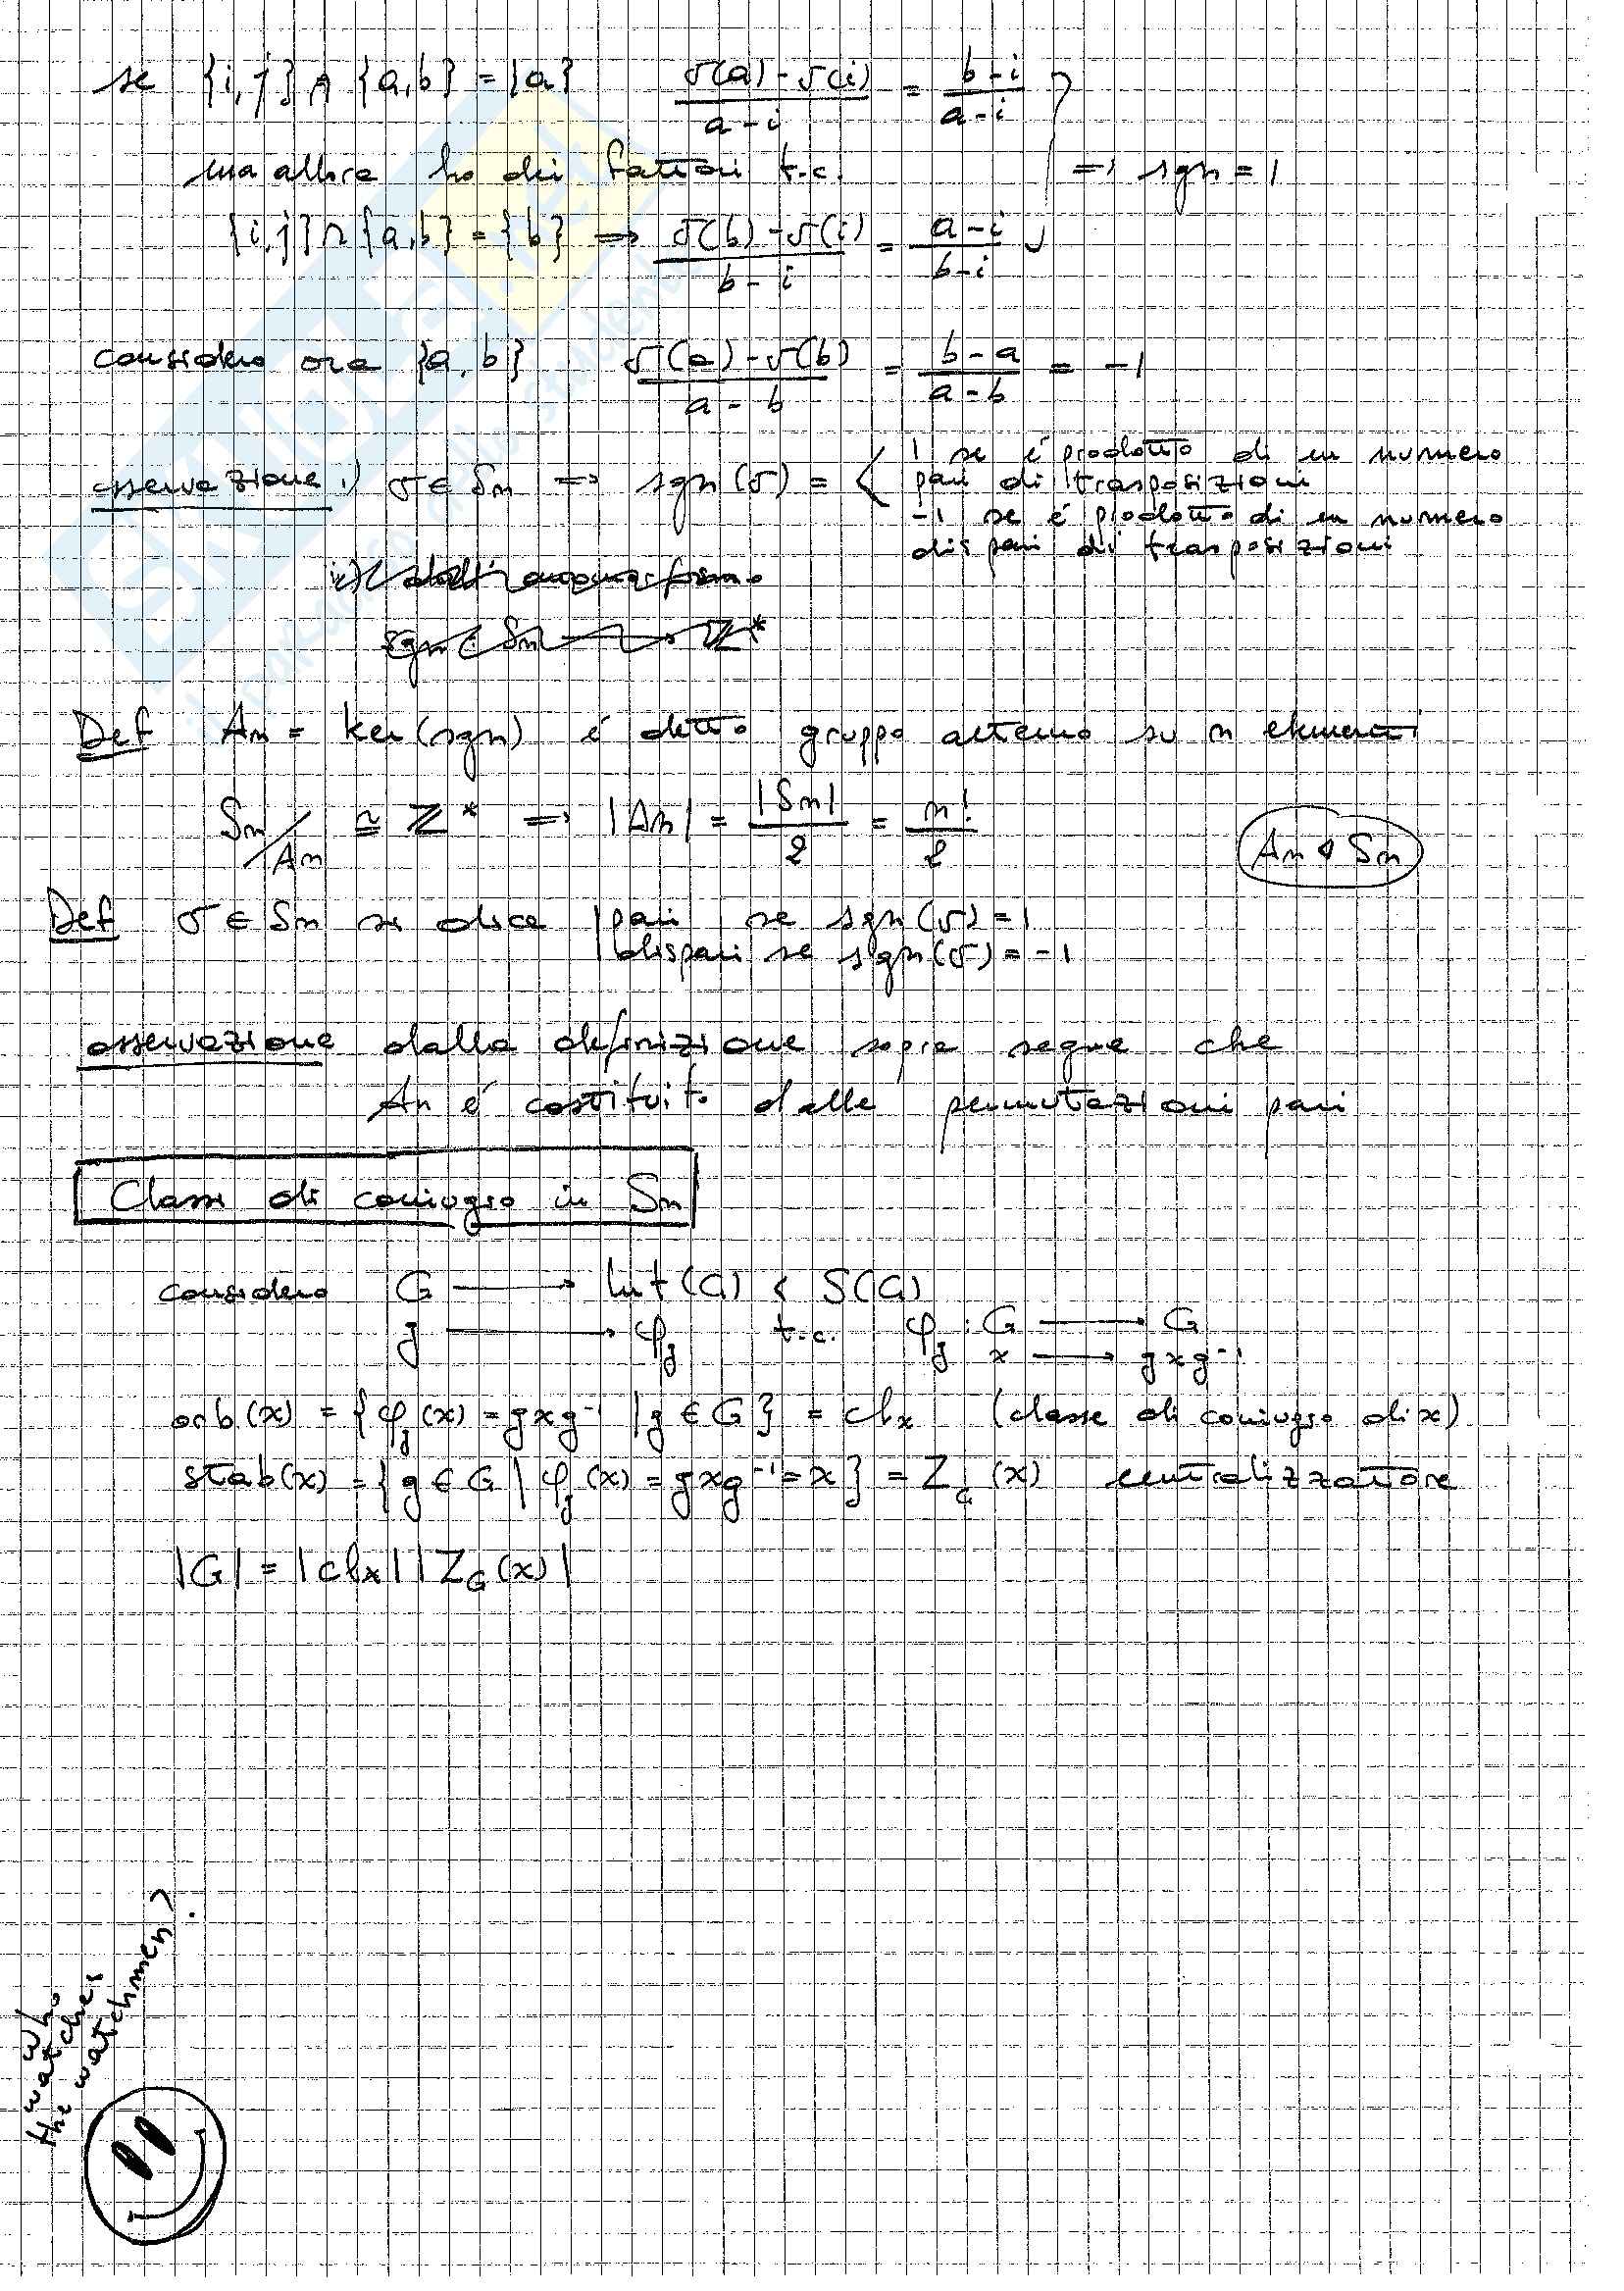 se {i,j} ∩ {a,b} = {a} (σ(a)-σ(i))/(a-i) = (b-i)/(a-i)
ma allora ho dei fattori t.c. => sgn = 1
{i,j} ∩ {a,b} = {b} => (σ(b)-σ(i))/(b-i) = (a-i)/(b-i)
considero ora {a,b} (σ(a)-σ(b))/(a-b) = (b-a)/(a-b) = -1
osservazione i) σ ∈ Sn => sgn(σ) = < 1 se é prodotto di un numero
pari di trasposizioni
-1 se é prodotto di un numero
dispari di trasposizioni
sgn : Sn → ℤ*
Def An = ker(sgn) é detto gruppo alterno su n elementi
Sn/An ≅ ℤ* => |An| = |Sn|/2 = n!/2
An ◁ Sn
Def σ ∈ Sn si dice | pari se sgn(σ) = 1
| dispari se sgn(σ) = -1
osservazione dalla definizione sopra segue che
An é costituito dalle permutazioni pari
Classi di coniugio in Sn
considero G → Int(G) < S(G)
g → φg t.c. φg : G → G
x → gxg⁻¹
orb(x) = {φg(x) = gxg⁻¹ | g ∈ G} = clx (classe di coniugio di x)
stab(x) = {g ∈ G | φg(x) = gxg⁻¹ = x} = ZG(x) centralizzatore
|G| = |clx| |ZG(x)|
who
watches
the watchmen?